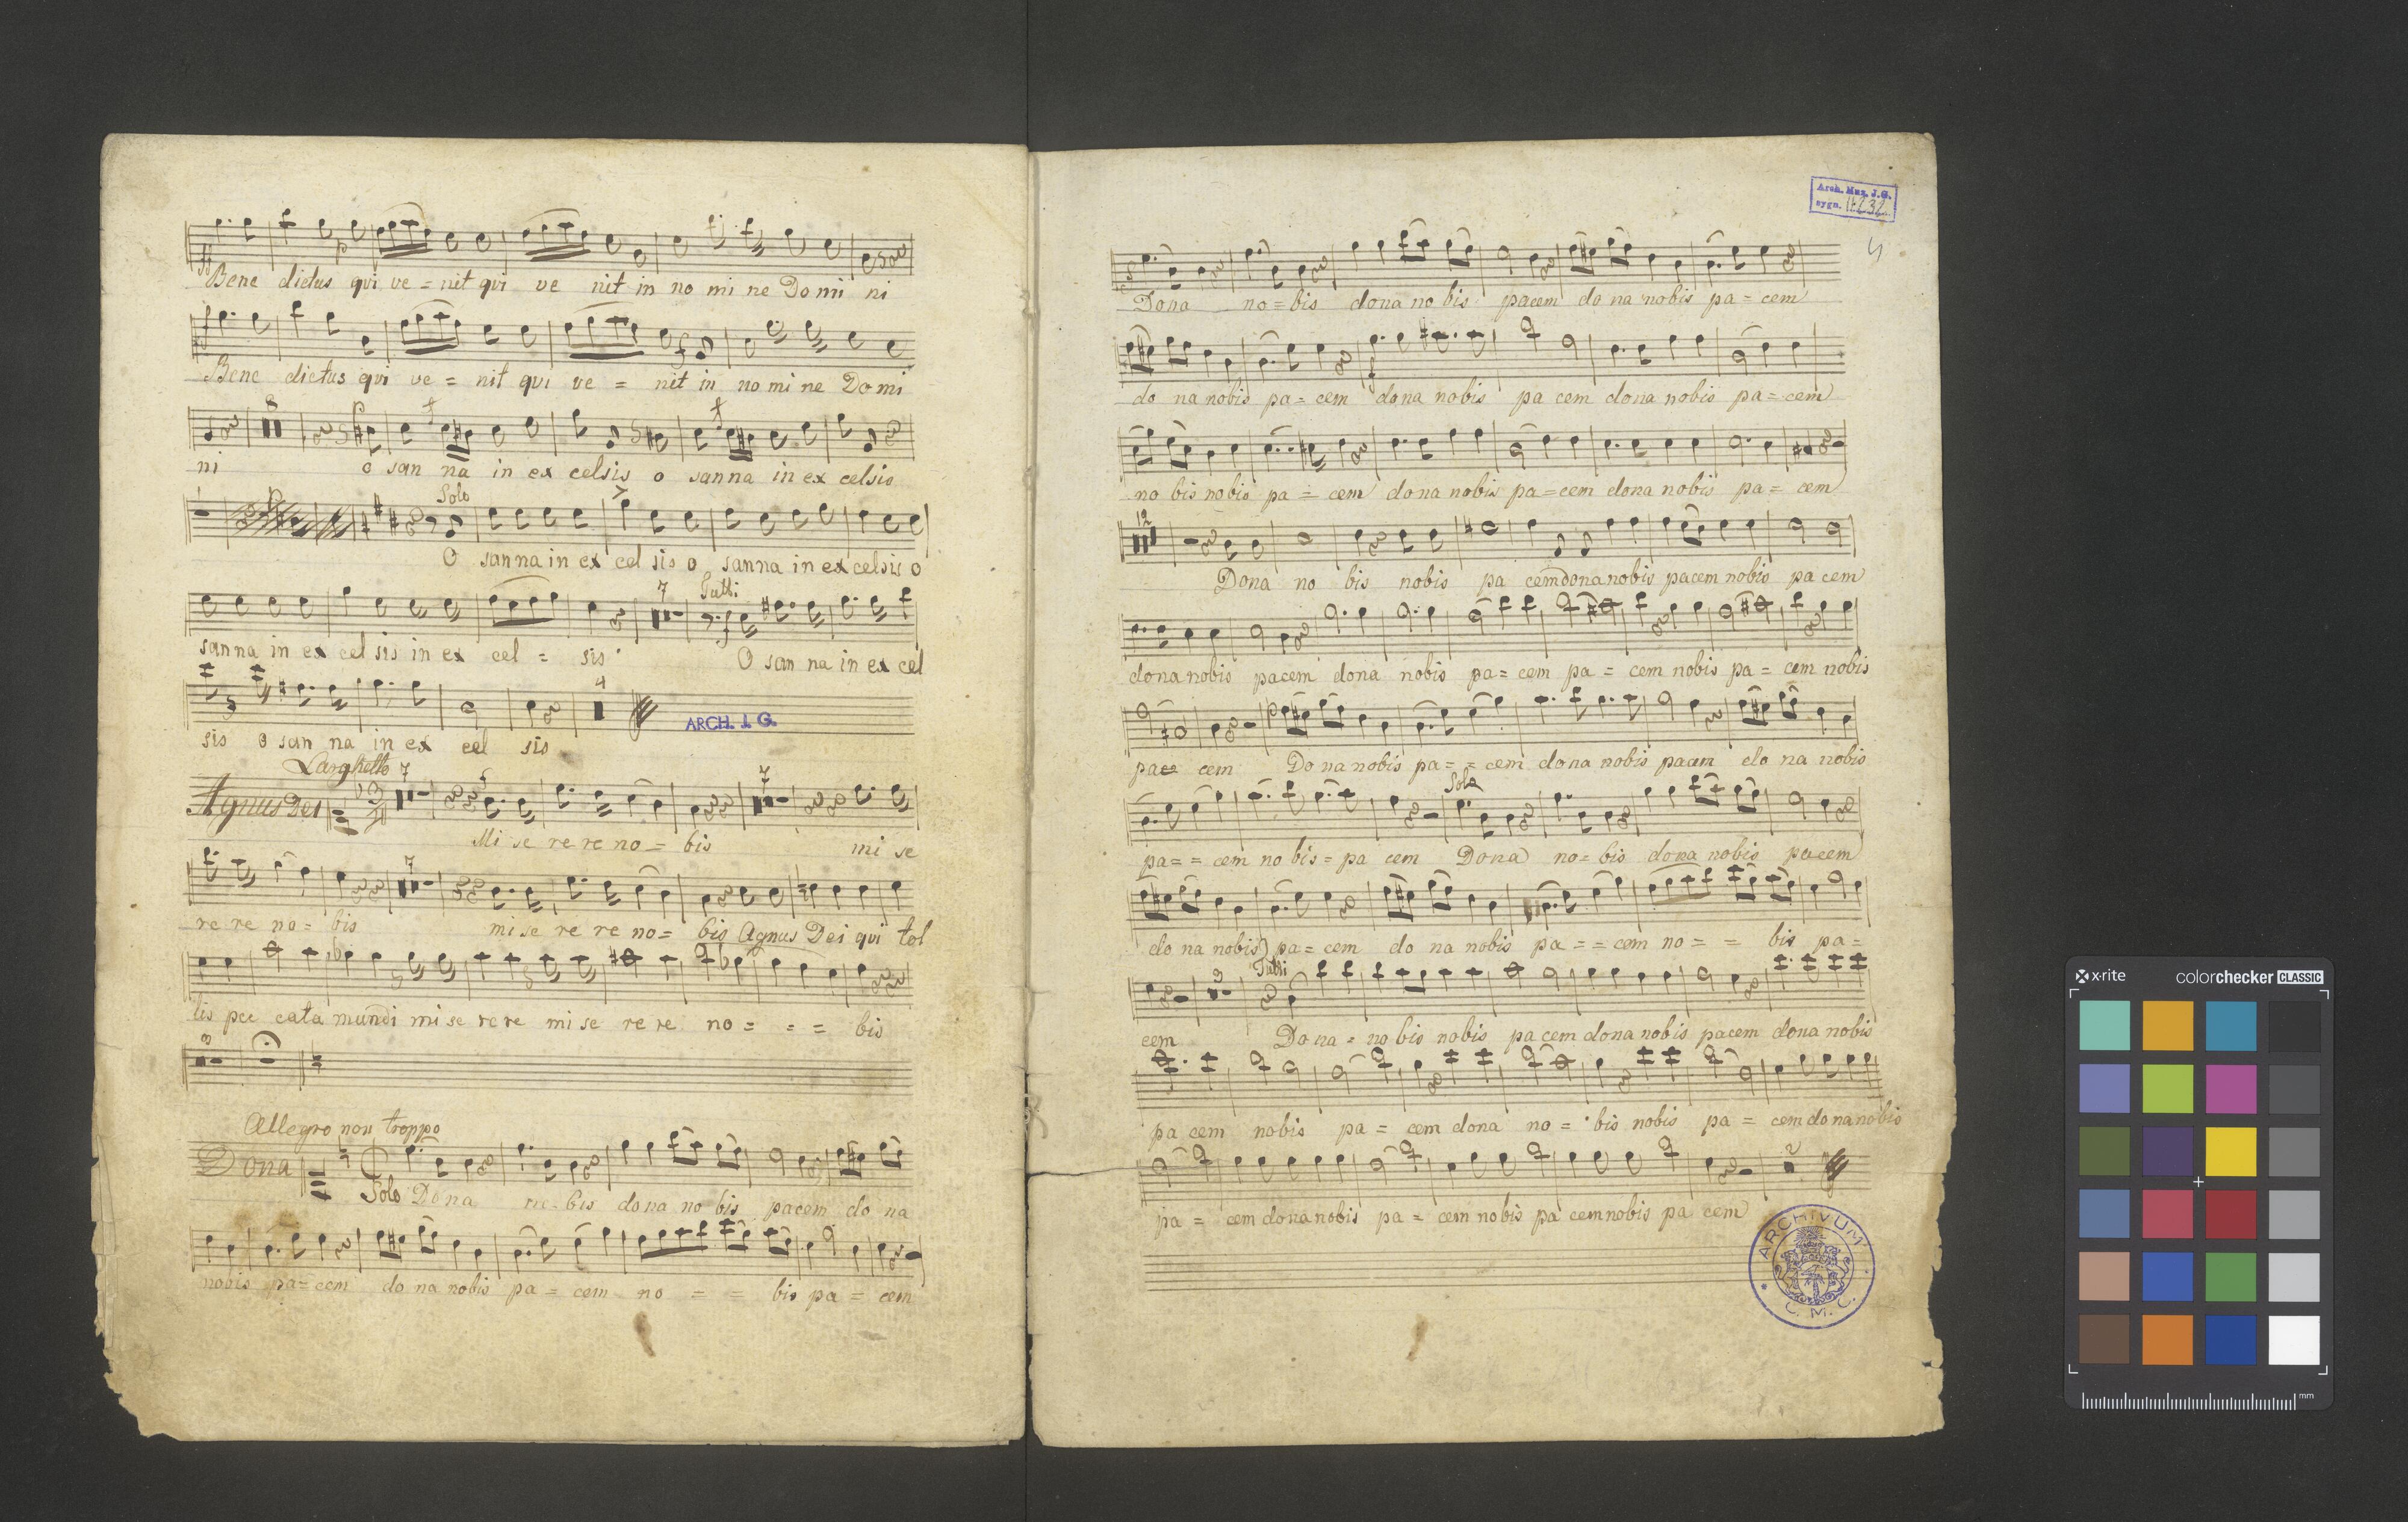 Bene dictus qui ve = nit qui ve nit in no mi ne Do mi ni
Bene dictus qui ve = nit qui ve = nit in no mi ne Do mi
8
ni o san na in ex celsis o sanna in ex celsis
Solo
O sanna in ex cel sis o sanna in ex celsis o
7 Tutti
sanna in ex cel sis in ex cel = sis O san na in ex cel
4
ARCH. J. G.
sis o san na in ex cel sis
Larghetto 7 7
Agnus Dei
Mi se re re no = bis mi se
7
re re no = bis mi se re re no = bis Agnus Dei qui tol
lis pec cata mundi mi se re re mi se re re no = = = bis
3
Allegro non troppo
Dona
Solo Dona no = bis dona no bis pacem do na
nobis pa = cem do na nobis pa = cem no = = bis pa = cem
Arch. Muz. J.G.
sygn. II.232.
4
Dona no = bis dona no bis pacem do na nobis pa = cem
do na nobis pa = cem dona nobis pa cem dona nobis pa = cem
no bis nobis pa = cem dona nobis pa = cem dona nobis pa = cem
12
Dona no bis nobis pa cem dona nobis pacem nobis pa cem
dona nobis pacem dona nobis pa = cem pa = cem nobis pa = cem nobis
cem Do na nobis pa = = cem dona nobis do na nobis
Solo
pa = = cem no bis = pa cem Dona no = bis dona nobis pacem
do na nobis pa = cem do na nobis pa = = cem no = = bis pa =
3 Tutti
cem Do na = no bis nobis pa cem dona nobis pacem dona nobis
pa cem nobis pa = cem dona no = bis nobis pa = cem dona nobis
2
pa = cem dona nobis pa = cem nobis pa cem nobis pa cem
ARCHIVUM
C. M. C.
x-rite colorchecker CLASSIC
mm